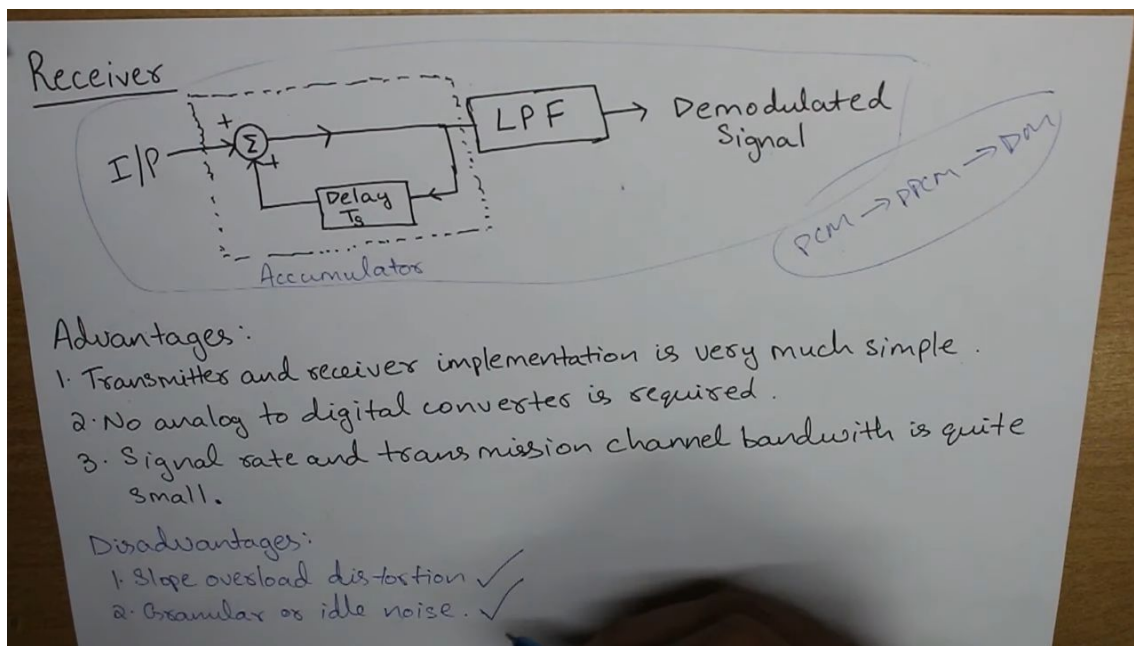 Receiver
I/P
+
Σ
+
Delay
Ts
LPF
Demodulated
Signal
Accumulator
PCM → DPCM → DM
Advantages:
1. Transmitter and receiver implementation is very much simple.
2. No analog to digital converter is required.
3. Signal rate and transmission channel bandwith is quite
small.
Disadvantages:
1. Slope overload distortion ✓
2. Granular or idle noise. ✓